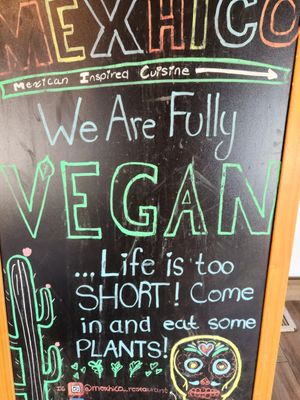 MEXHICO
Mexican Inspired Cuisine
We Are Fully
VEGAN
...Life is too
SHORT! Come
in and eat some
PLANTS!
IG @mexhico_restaurant